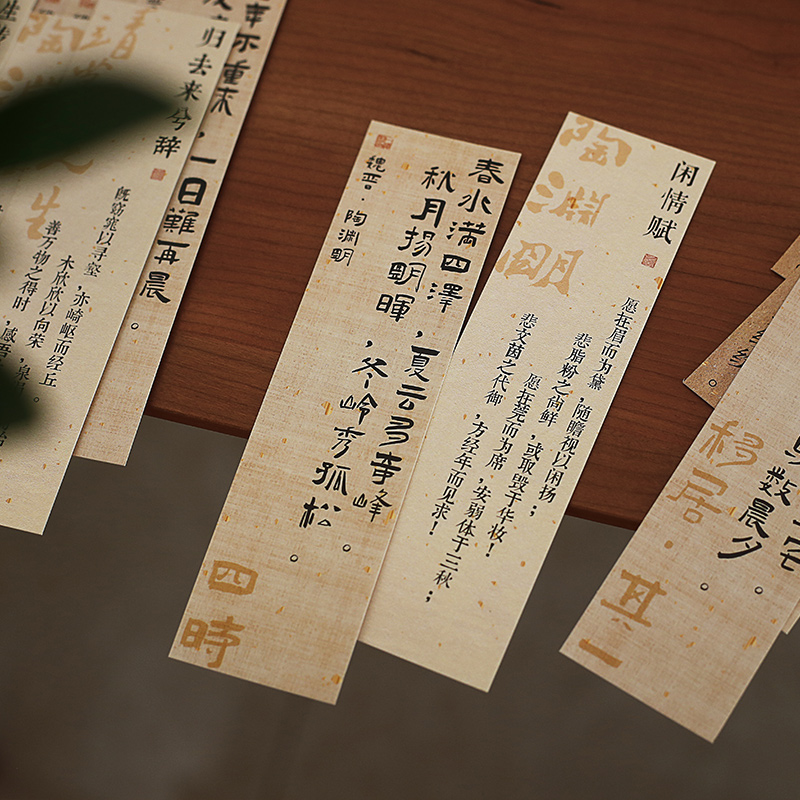 年不重来，一日難再晨。
归去来兮辞
既窈窕以寻壑，亦崎岖而经丘。
木欣欣以向荣，泉
善万物之得时，感吾
春水满四澤，夏云多奇峰。
秋月揚明暉，冬岭秀孤松。
魏晋·陶淵明
四時
闲情赋
陶淵明
愿在眉而为黛，随瞻视以闲扬；
悲脂粉之尚鲜，或取毁于华妆！
愿在莞而为席，安弱体于三秋；
悲文茵之代御，方经年而见求！
数晨夕。
移居·其一